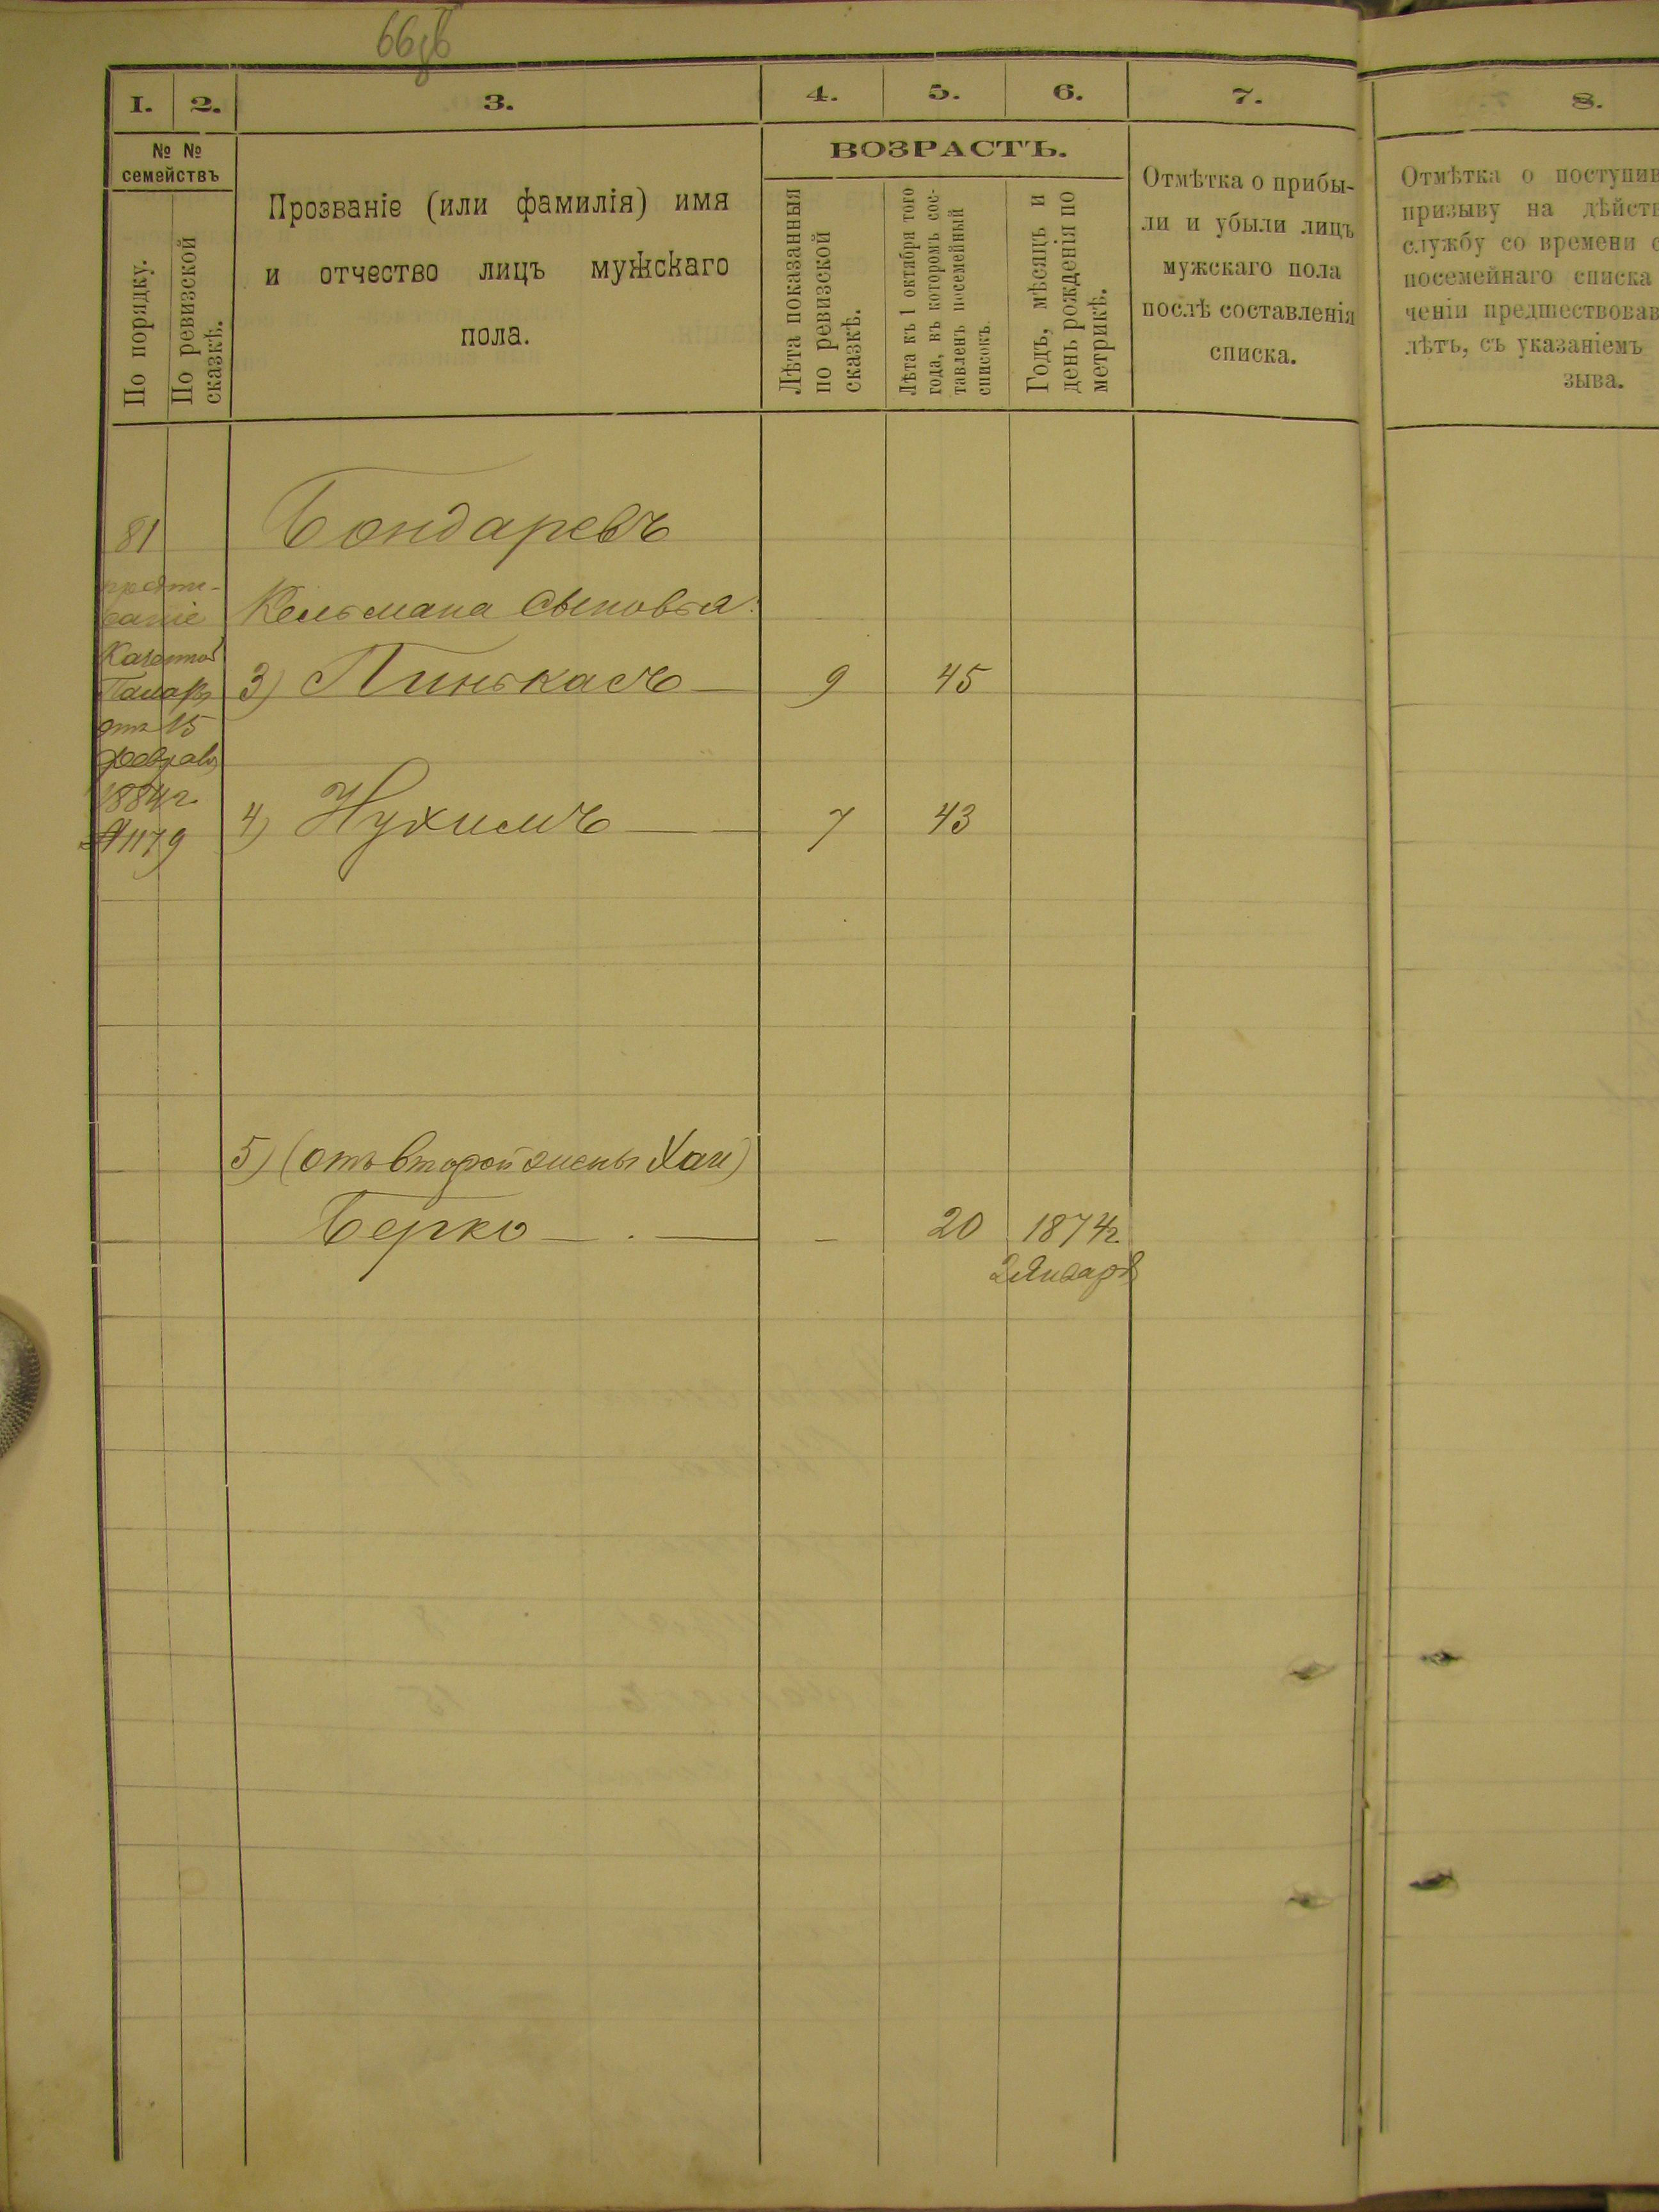 66об
1. 2. 3. 4. 5. 6. 7. 8.
№ №
семействъ
По порядку.
По ревизской
сказкѣ.
Прозваніе (или фамилія) имя
и отчество лицъ мужскаго
пола.
ВОЗРАСТЪ.
Лѣта показанныя
по ревизской
сказкѣ.
Лѣта къ 1 октября того
года, въ которомъ сос-
тавленъ посемейный
списокъ.
Годъ, мѣсяцъ и
день рожденія по
метрикѣ.
Отмѣтка о прибы-
ли и убыли лицъ
мужскаго пола
послѣ составленія
списка.
Отмѣтка о поступив
призыву на дѣйств
службу со времени с
посемейнаго списка
ченіи предшествовав
лѣтъ, съ указаніемъ
зыва.
81 Бондаревъ
Кельмана Сыновья:
3) Пинькасъ — 9 45
отъ 15
февраля
1884 г.
№ 1179
4) Нухимъ — 7 43
5) (отъ второй жены Хаи)
Берко — . — – 20 1874 г.
2 Января